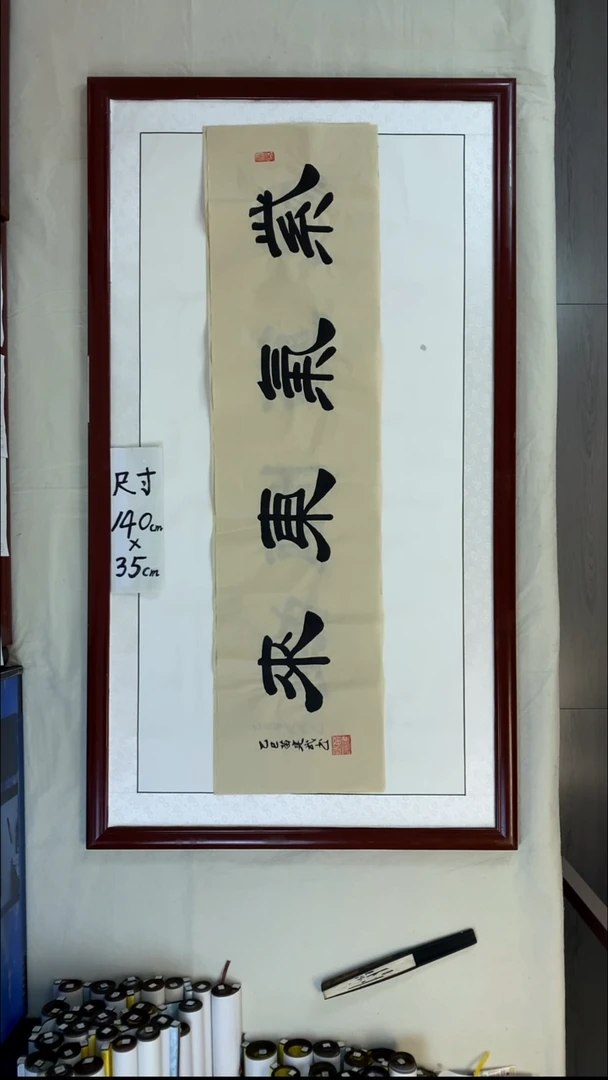 紫氣東來
乙巳
尺寸
140cm
×
35cm